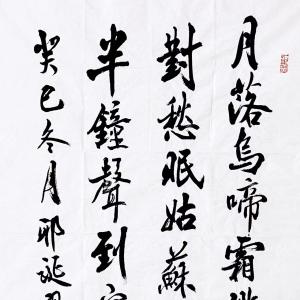 月落烏啼霜
對愁眠姑蘇
半鐘聲到
癸巳冬月